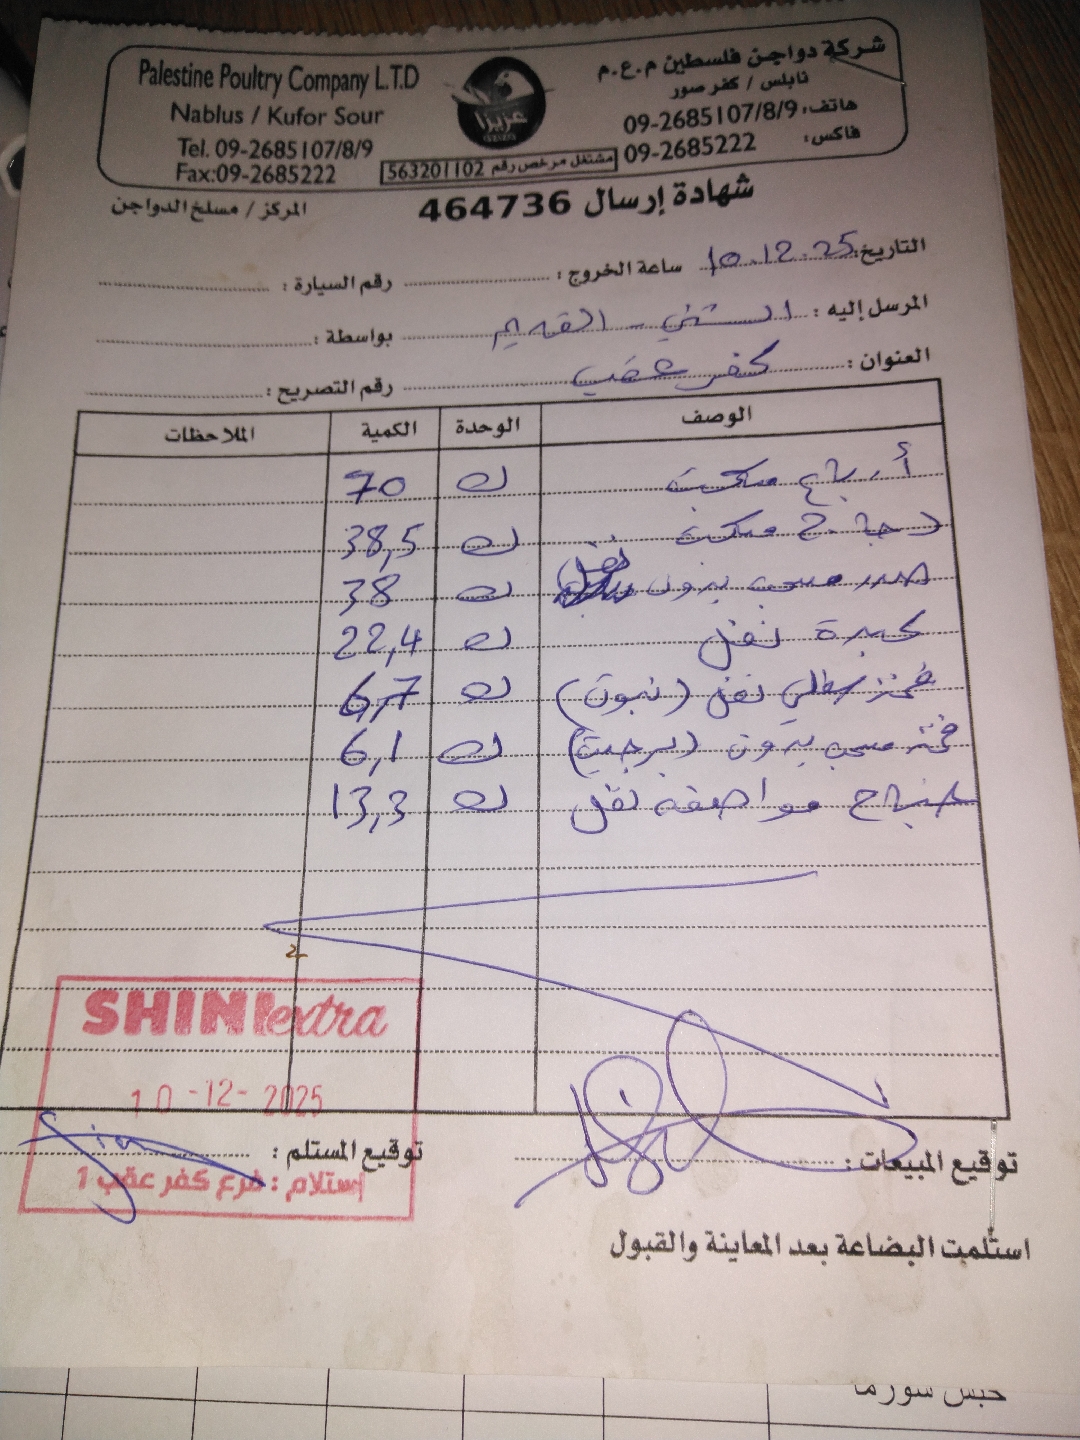 Palestine Poultry Company L.T.D
Nablus / Kufor Sour
Tel. 09-2685107/8/9
Fax:09-2685222
عزيزا
شركة دواجن فلسطين م.ع.م
نابلس / كفر صور
هاتف: 09-2685107/8/9
فاكس: 09-2685222
مشتغل مرخص رقم 563201102
شهادة إرسال 464736
المركز / مسلخ الدواجن
التاريخ: 10.12.25 ساعة الخروج : رقم السيارة :
المرسل إليه : الشني - القديم بواسطة :
العنوان : كفر عقب رقم التصريح :
الوصف الوحدة الكمية الملاحظات
أرباع ك 70
دجاج ك 38,5
صدر مسحب بدون نفل ك 38
كبدة نفل ك 22,4
نفل ك 6,7
مسحب بدون ك 6,1
جناح مواصفه نفل ك 13,3
SHINI extra
10-12-2025
استلام : فرع كفر عقب 1
توقيع المبيعات : توقيع المستلم :
استلمت البضاعة بعد المعاينة والقبول
حبش سورما